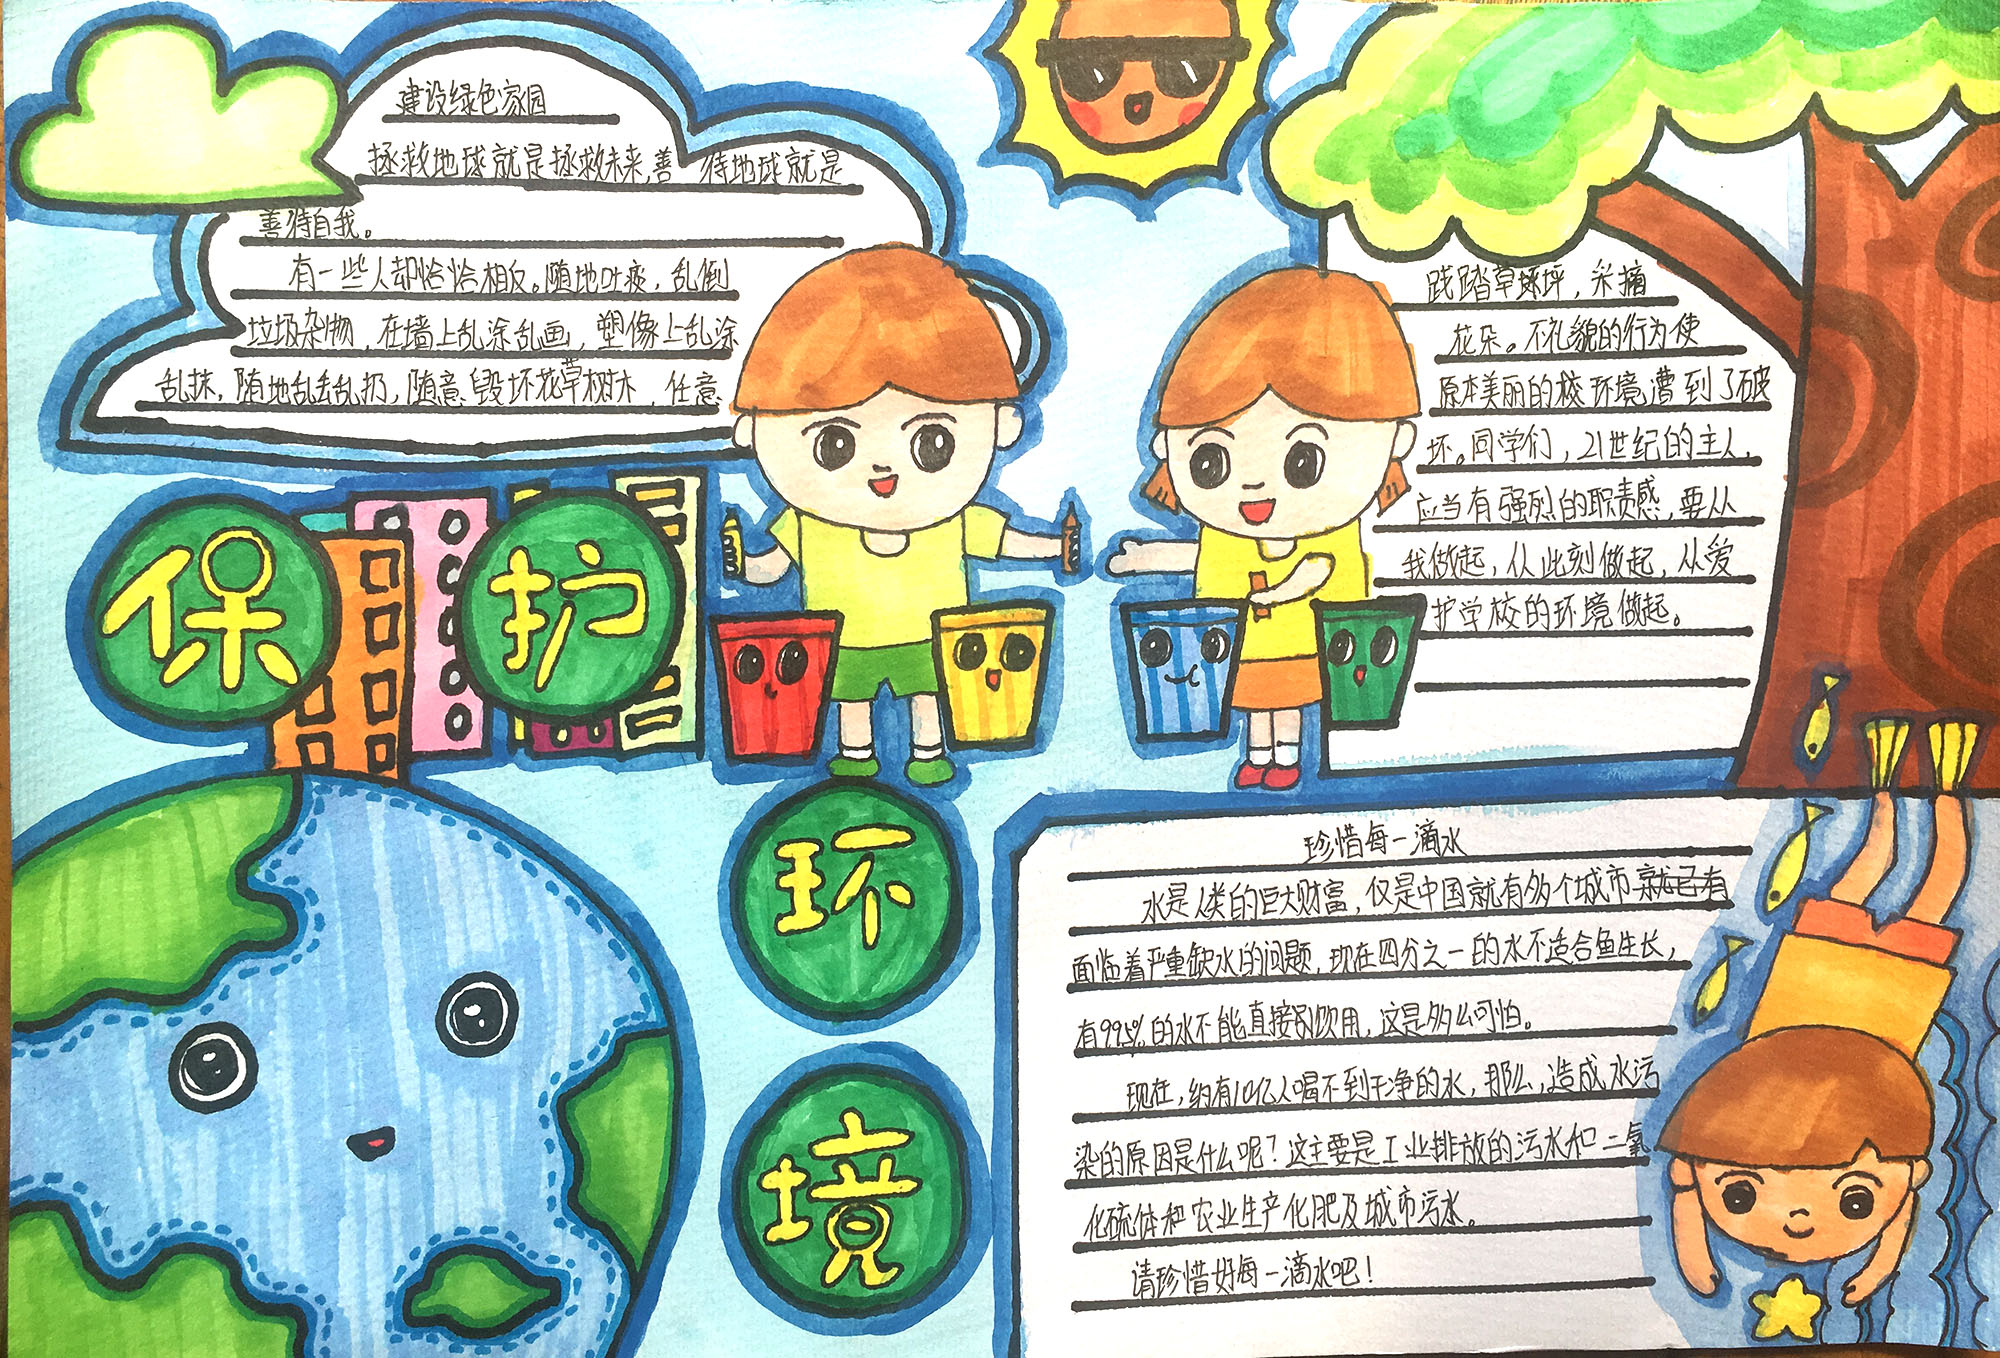 建设绿色家园
拯救地球就是拯救未来,善待地球就是
善待自我。
有一些人却恰恰相反。随地吐痰,乱倒
垃圾杂物,在墙上乱涂乱画,塑像上乱涂
乱抹,随地乱丢乱扔,随意毁坏花草树木,任意
践踏草坪,采摘
花朵。不礼貌的行为使
原本美丽的校环境遭到了破
坏。同学们,21世纪的主人,
应当有强烈的职责感,要从
我做起,从此刻做起,从爱
护学校的环境做起。
保护
环
境
珍惜每一滴水
水是人类的巨大财富,仅是中国就有多个城市就已有
面临着严重缺水的问题,现在四分之一的水不适合鱼生长,
有99.5%的水不能直接饮用,这是多么可怕。
现在,约有10亿人喝不到干净的水,那么,造成水污
染的原因是什么呢?这主要是工业排放的污水和二氧
化硫体和农业生产化肥及城市污水。
请珍惜好每一滴水吧!